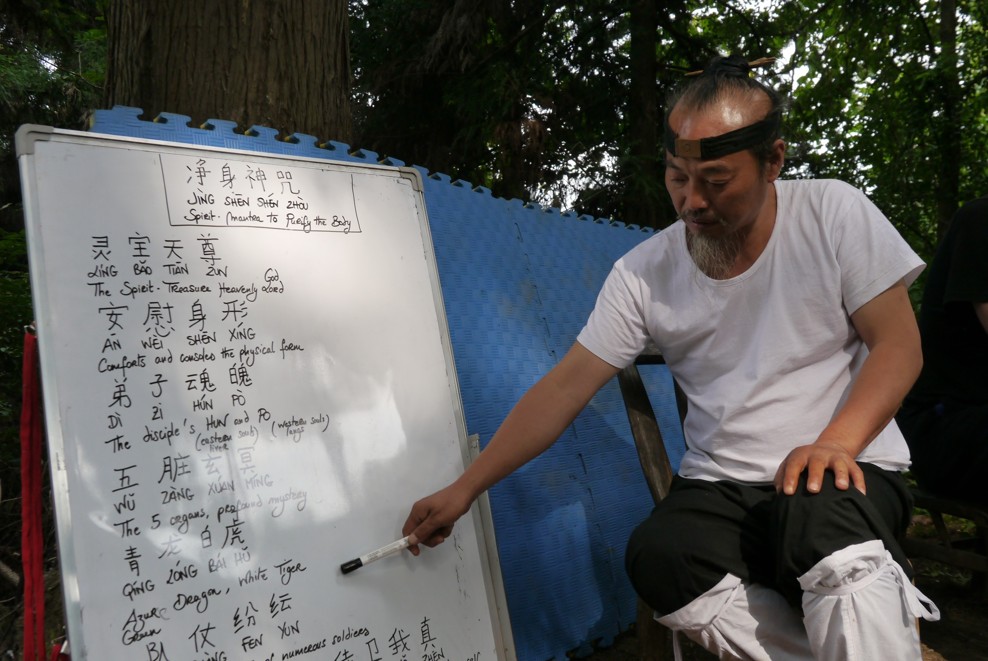 净身神咒
JÌNG SHĒN SHÉN ZHÒU
Spirit-Mantra to Purify the Body
灵宝天尊
LÍNG BǍO TIĀN ZŪN
The Spirit-Treasure Heavenly Lord
God
安慰身形
ĀN WÈI SHĒN XÍNG
Comforts and consoles the physical form
弟子魂魄
DÌ ZǏ HÚN PÒ
The disciple's HUN and PO
(eastern soul) (western soul)
liver lungs
五脏玄冥
WǓ ZÀNG XUÁN MÍNG
The 5 organs, profound mystery
青龙白虎
QĪNG LÓNG BÁI HǓ
Azure Dragon, White Tiger
Green
仗纷纭
FĒN YÚN
of numerous soldiers
卫我真
ZHĒN